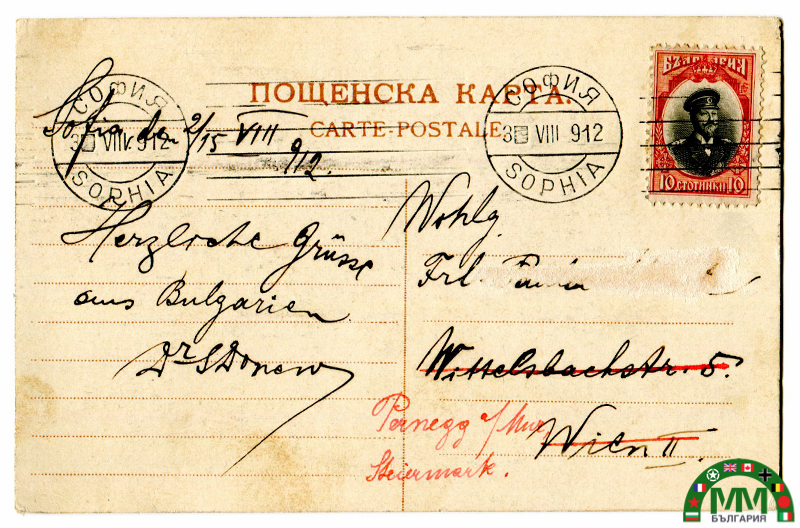 ПОЩЕНСКА КАРТА.
CARTE-POSTALE
СОФИЯ
3 VIII 912
SOPHIA
СОФИЯ
3 VIII 912
SOPHIA
БЪЛГАРИЯ
10 СТОТИНКИ 10
Sofia den 2/15 VIII
912.
Herzliche Grüsse
aus Bulgarien
Dr SDonew
Wohlg
Frl.
Wittelsbachstr. 5.
Wien II
Pernegg a/Mur
Steiermark.
MM
БЪЛГАРИЯ